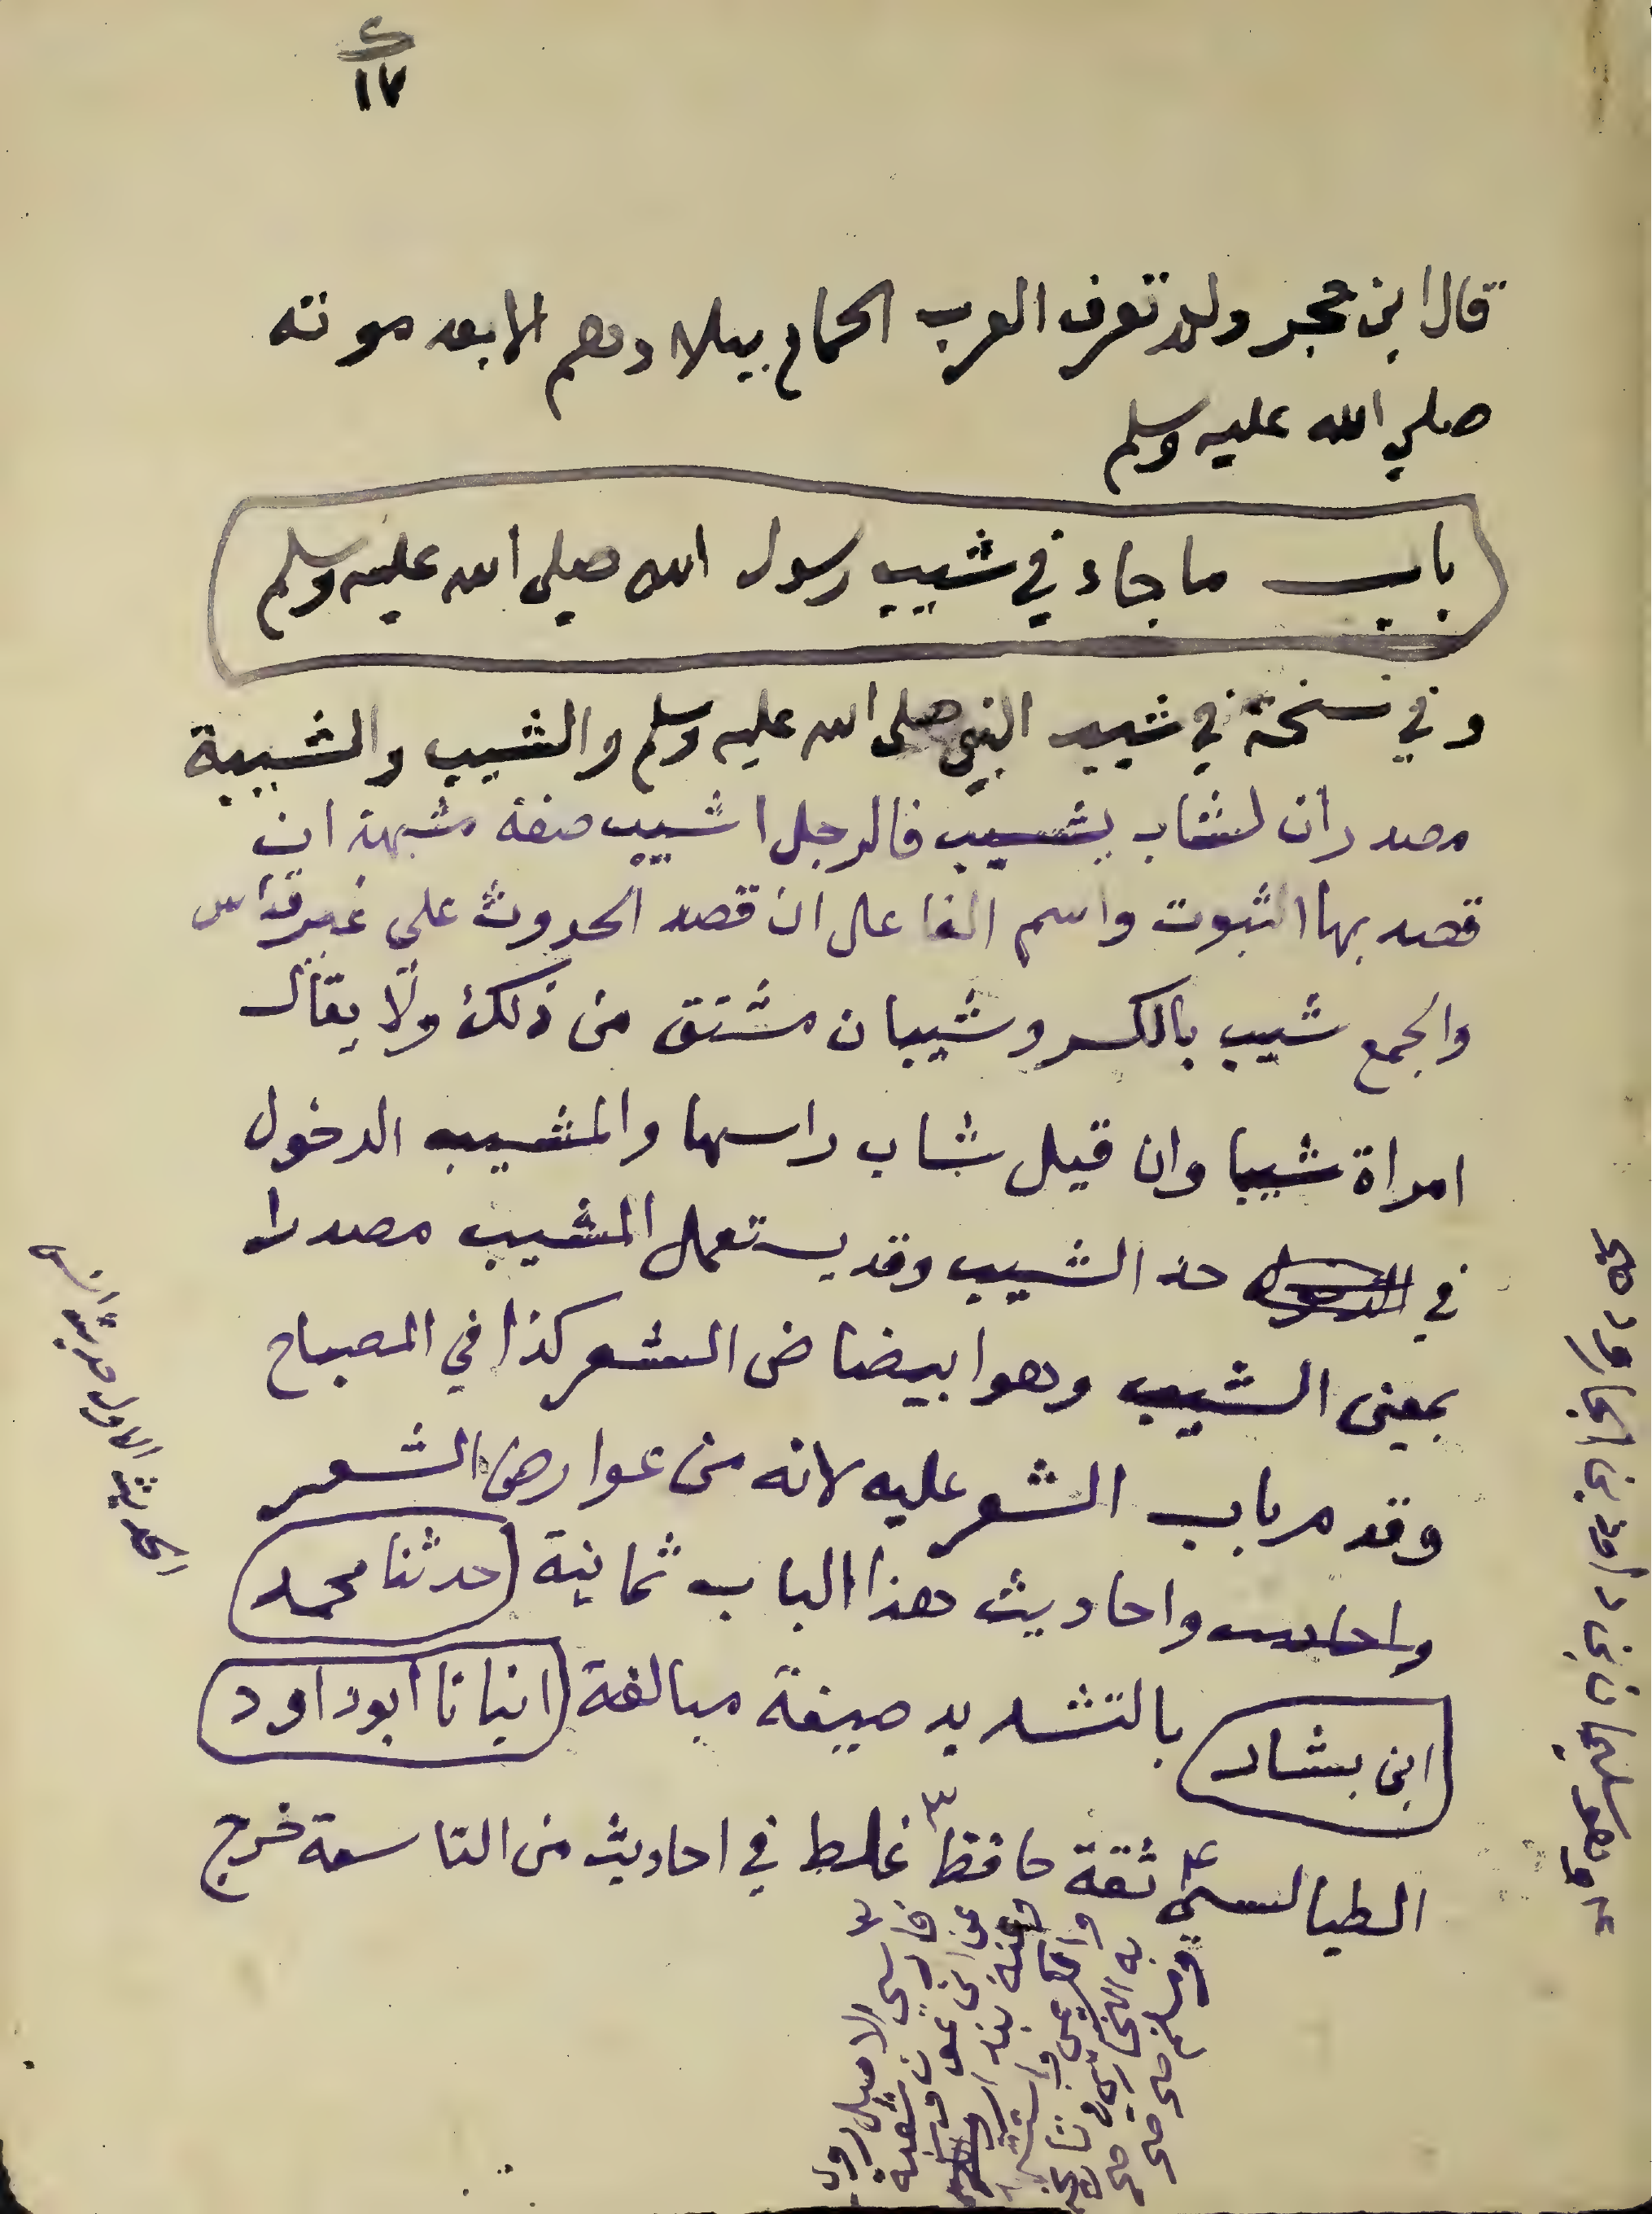 ء
١٧
قال ابن حجر ولم تعرف العرب الحمام ببلادهم الا بعد موته
صلي الله عليه وسلم
باب ما جاء في شيب رسول الله صلى الله عليه وسلم
وفي نسخة في شيب النبي صلى الله عليه وسلم والشيب والشيبة
مصدران لشاب يشيب فالرجل اشيب صفة مشبهة ان
قصد بها الثبوت واسم الفاعل ان قصد الحدوث على غير قياس
والجمع شيب بالكسر وشيبان مشتق من ذلك ولا يقال
امراة شيبا وان قيل شاب راسها والمشيب الدخول
في حد الشيب وقد يستعمل المشيب مصدرا
بمعنى الشيب وهو ابيضاض الشعر كذا في المصباح
وقدم باب الشعر عليه لانه من عوارض الشعر
واحاديث هذا الباب ثمانية حدثنا محمد
ابن بشار بالتشديد صيغة مبالغة انبانا ابو داود
الطيالسي ثقة حافظ غلط في احاديث من التاسعة خرج
فارسي الاصل روى
عن ابن عون وشعبة
وعنه بندار
به البخاري في تاريخه
ومسلم صح صح
وهو سليمان بن داود بن الجارود صح
الحديث الاول حديث انس